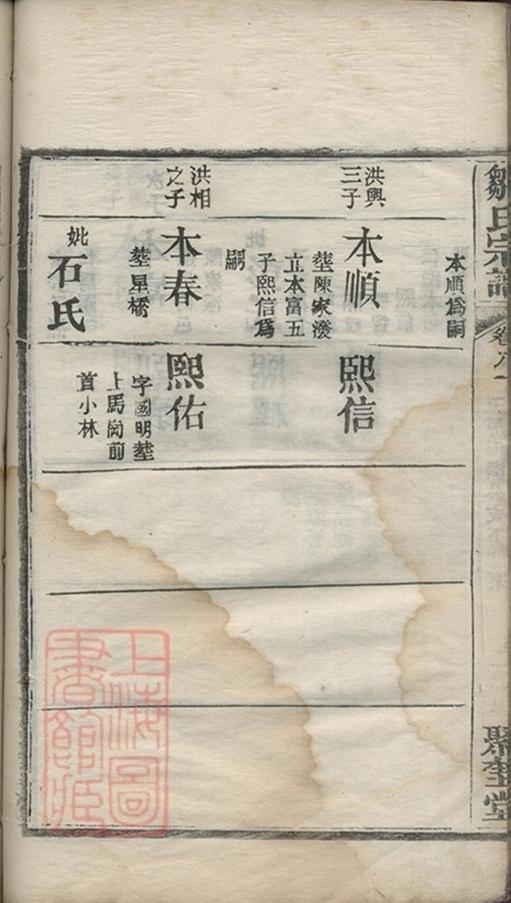 鄒氏宗譜
卷六一
聚奎堂
本順為嗣
洪興
三子
本順
塟陳家潑
立本富五
子熙信為
嗣
熙信
洪相
之子
本春
塟星橋
妣
石氏
熙佑
字國明塟
上馬崗前
首小林
上海圖
書館藏